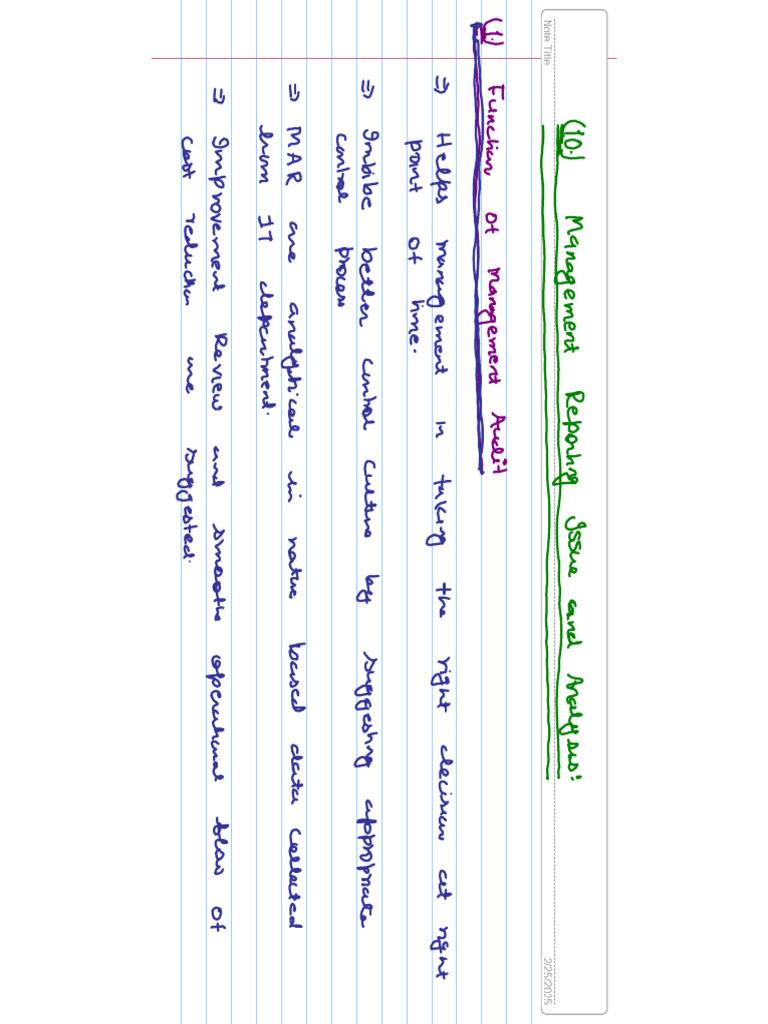 Note Title
2/25/2025
(10.) Management Reporting Issue and Analysis:
(1.) Function of Management Audit
⇒ Helps management in taking the right decision at right
point of time.
⇒ Imbibe better control culture by suggesting appropriate
control process
⇒ MAR are analytical in nature based data collected
from IT department.
⇒ Improvement Review and smooth operational flow of
cost reduction are suggested.